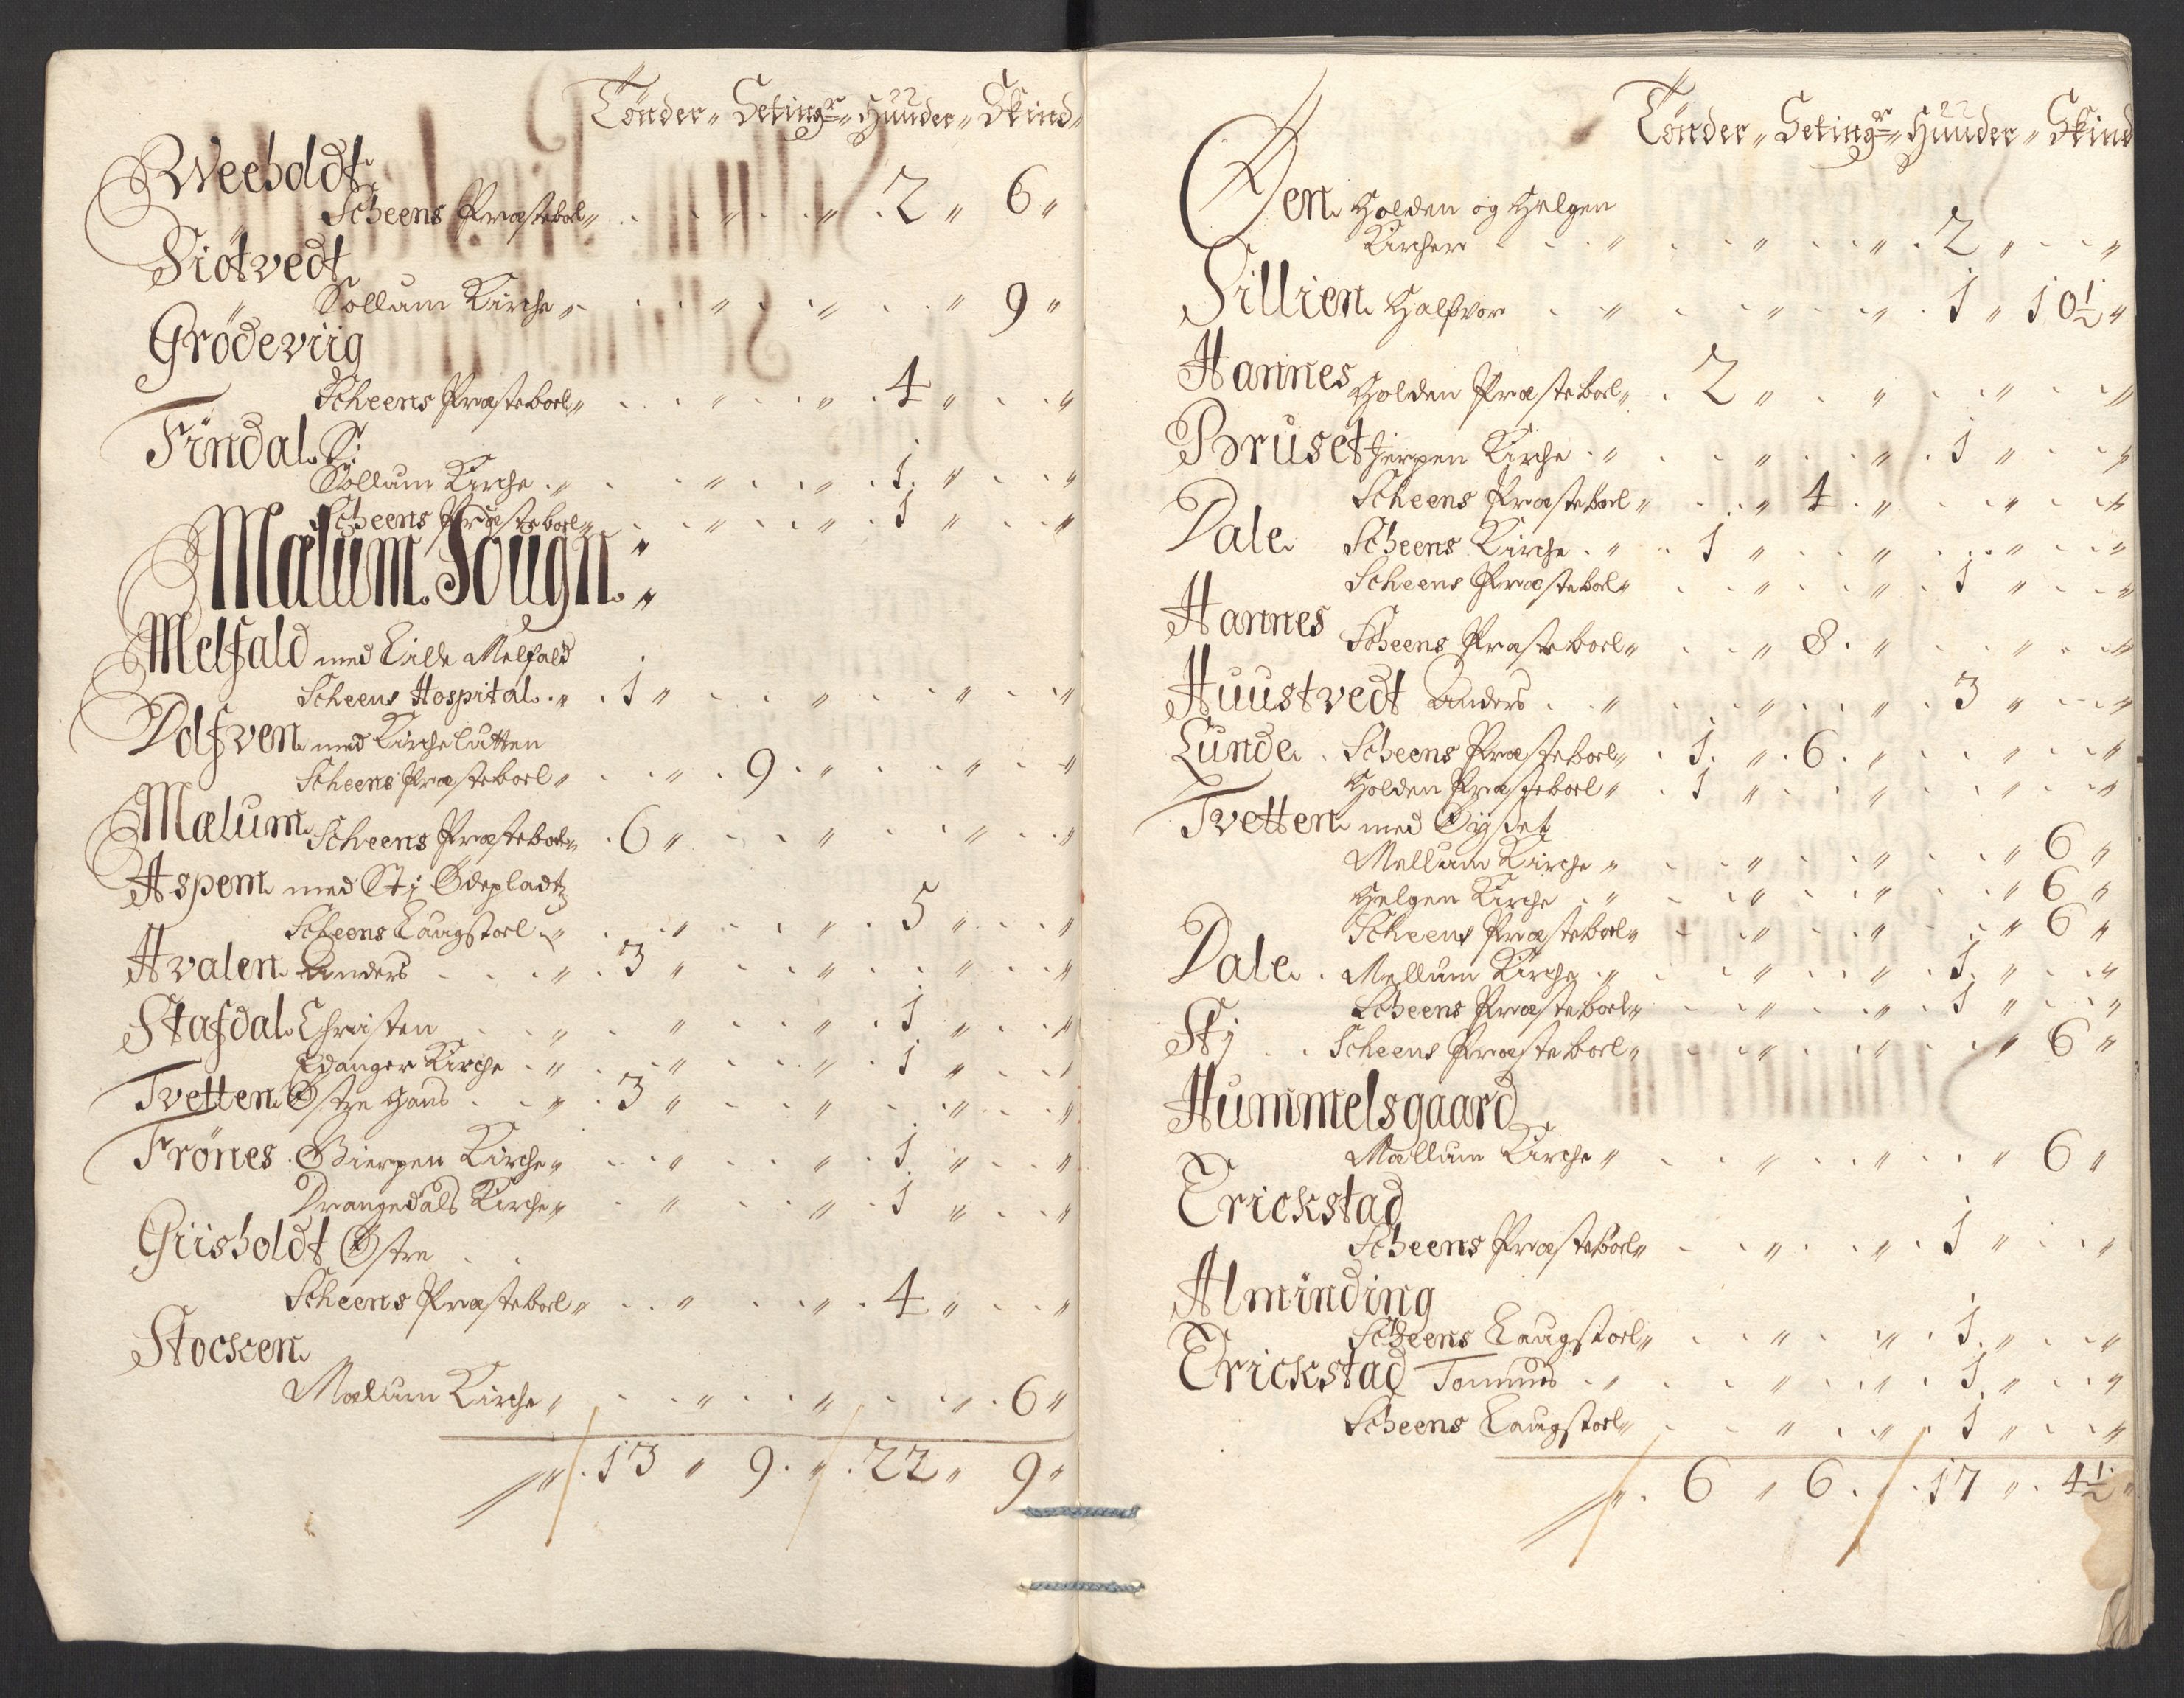 Tönder „ Setingr „ Huuder „ Skind „
Rveeholdt
Scheens Præsteboel „ . . „ . . „ . 2 „ 6 „
Siötvedt
Sollum Kirche „ . . „ . . „ . . „ 9 „
Grödeviig
Scheens Præsteboel „ . . „ . . „ . 4 „ . . „
Findal
Sollum Kirche . „ . . „ . . „ . 1. „ . . „
Scheens Præsteboel „ . . „ . . „ . 1 „ . . „
Mælum Sougn „
Melfald med Lille Melfald
Scheens Hospital . „ . 1 „ . . „ . . „ . . „
Dolfven med Kirchelutten
Scheens Præsteboel „ . . „ . 9 . „ . . „ . . „
Mælum Scheens Præsteboel „ . 6 „ . . „ . . „ . . „
Aspem med Sti Ödepladtz
Scheens Laugstoel „ . . „ . . „ . 5 „ . . „
Hvalen Anders . . . „ . 3 „ . . „ . . „ . . „
Stafdal Christen . . „ . . „ . . „ . 1 „ . . „
Edanger Kirche . „ . . „ . . „ . 1 „ . . „
Tvetten Østre Hans . . „ . 3 „ . . „ . . „ . . „
Frönes . Gierpen Kirche „ . . „ . . „ . 1. „ . . „
Drangedals Kirche „ . . „ . . „ . 1 „ . . „
Griisholdt Østre . .
Scheens Præsteboel „ . . „ . . „ . 4 „ . . „
Stocken
Mælum Kirche „ . . „ . . „ . . „ . 6 „
„ . 13 „ 9 . „ . 22 „ 9 „
Tönder „ Setingr „ Huuder „ Skind
Øen Holden og Helgen
Kircher . . . „ . . „ . . „ . 2 „ . . „
Sillien Halfvor . . „ . . „ . . „ . 1 „ 10½ „
Hannes Holden Præsteboel „ . 2 „ . . „ . . „ . . „
Bruset Jerpen Kirche . „ . . „ . . „ . 1 „ . . „
Scheens Præsteboel „ . . „ 4 . „ . . „ . . „
Dale Scheens Kirche . „ . 1 „ . . „ . . „ . . „
Scheens Præsteboel „ . . „ . . „ . 1 „ . . „
Hannes Scheens Præsteboel „ . . „ 8. „ . . „ . . „
Huustvedt Anders . . „ . . „ . . „ . 3 „ . . „
Lunde . Scheens Præsteboel „ . 1. „ . 6 . „ . . „ . . „
Holden Præsteboel „ . 1 „ . . „ . . „ . . „
Tvetten med
Mellum Kirche „ . . „ . . „ . . „ 6 „
Helgen Kirche . „ . . „ . . „ . . „ 6 „
Scheens Præsteboel „ . . „ . . „ . . „ 6 „
Dale . Mellum Kirche . „ . . „ . . „ . 1. „ . . „
Scheens Præsteboel „ . . „ . . „ . 1 „ . . „
Sti . . Scheens Præsteboel „ . . „ . . „ . . „ 6 „
Hummelsgaard
Mællum Kirche „ . . „ . . „ . . „ 6 „
Erickstad
Scheens Præsteboel „ . . „ . . „ . 1 „ . . „
Alminding
Scheens Laugstoel „ . . „ . . „ . 1. „ . . „
Erickstad Tommes . „ . . „ . . „ . 1. „ . . „
Scheens Laugstoel „ . . „ . . „ . 1 „ . . „
„ . 6 „ 6 . „ . 17 „ . 4½ „